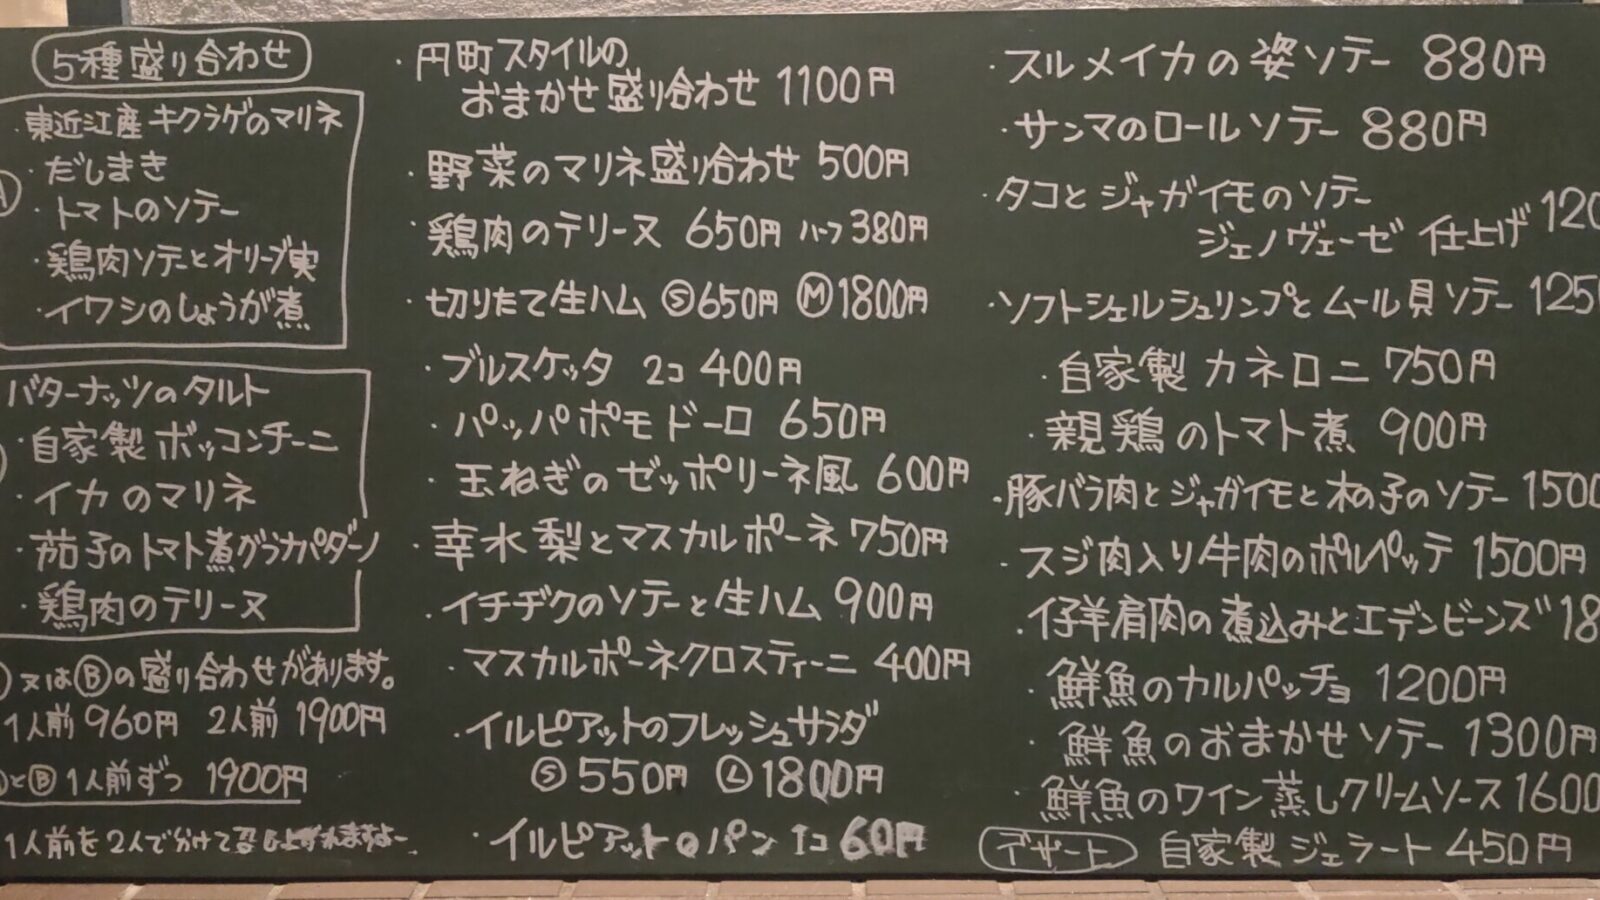 5種盛り合わせ
東近江産 キクラゲのマリネ
・だしまき
・トマトのソテー
・鶏肉ソテーとオリーブ実
・イワシのしょうが煮
バターナッツのタルト
・自家製 ボッコンチーニ
・イカのマリネ
・茄子のトマト煮グラナパダーノ
・鶏肉のテリーヌ
又はⒷの盛り合わせがあります。
1人前 960円 2人前 1900円
とⒷ1人前ずつ 1900円
1人前を2人で分けて
・円町スタイルの
おまかせ盛り合わせ 1100円
・野菜のマリネ盛り合わせ 500円
・鶏肉のテリーヌ 650円 ハーフ 380円
・切りたて生ハム Ⓢ650円 Ⓜ1800円
・ブルスケッタ 2コ 400円
・パッパポモドーロ 650円
・玉ねぎのゼッポリーネ風 600円
・幸水梨とマスカルポーネ 750円
・イチヂクのソテーと生ハム 900円
・マスカルポーネクロスティーニ 400円
・イルピアットのフレッシュサラダ
Ⓢ550円 Ⓛ1800円
・イルピアットのパン 1コ 60円
・スルメイカの姿ソテー 880円
・サンマのロールソテー 880円
・タコとジャガイモのソテー
ジェノヴェーゼ 仕上げ 120
・ソフトシェルシュリンプとムール貝ソテー 125
・自家製 カネロニ 750円
・親鶏のトマト煮 900円
・豚バラ肉とジャガイモと木の子のソテー 1500
・スジ肉入り牛肉のポルペッテ 1500円
・仔羊肩肉の煮込みとエデンビーンズ 18
・鮮魚のカルパッチョ 1200円
・鮮魚のおまかせソテー 1300円
・鮮魚のワイン蒸しクリームソース 1600
デザート 自家製ジェラート 450円